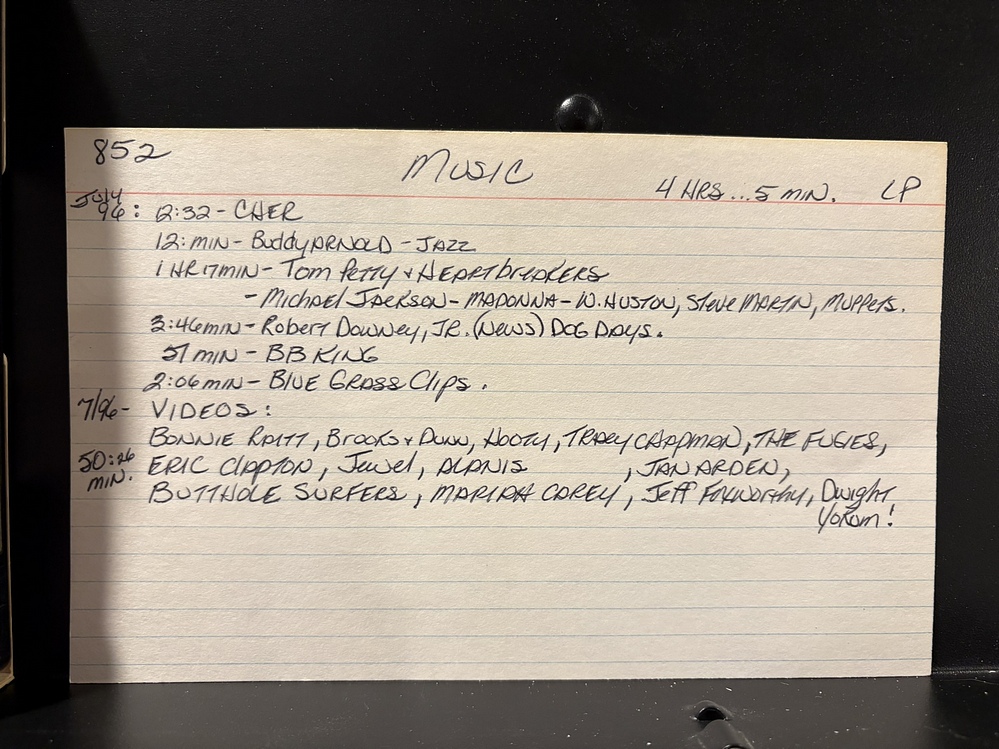 852
MUSIC
4 HRS...5 MIN. LP
July
96: 12:32 - CHER
12: MIN - Buddy ARNOLD - JAZZ
1 HR 17 MIN - Tom Petty + HEARTbreAKERS
- MICHAEL JACKSON - MADONNA - W. HUSTON, STEVE MARTIN, MUPPETS.
3:46 MIN - Robert Downey, JR. (NEWS) DOG DAYS.
51 MIN - BB KING
2:06 MIN - BLUE GRASS Clips.
7/96 - VIDEOS:
BONNIE RAITT, Brooks + Dunn, HOOTY, TRACY CHAPMAN, THE FUGIES,
50:26 ERIC Clapton, Jewel, ALANIS , JAN ARDEN,
MIN. BUTTHOLE SURFERS, MARIAH CAREY, Jeff FOXWORTHY, Dwight
Yokum!